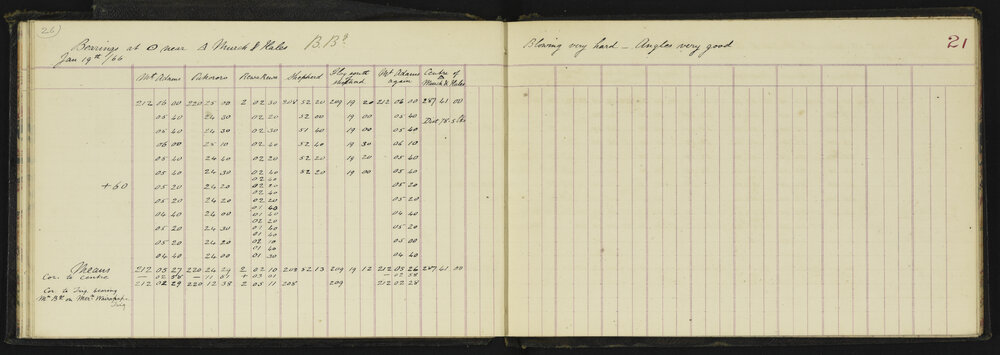 26
Bearings at ⊙ near △ Murch & Hales B.Bs
Blowing very hard – Angles very good
21
Jan 19th /66
Mt Adams Pukororo Rewa Rewa Shepherd Flag south shepherd Mt Adams again Centre of △ Murch & Hales
212 06 00 220 25 00 2 02 30 208 52 20 209 19 20 212 06 00 287 41 00
05 40 24 30 02 20 52 00 19 00 05 40 Dist 78.5 lks
05 40 24 30 02 30 51 40 19 00 05 40
06 00 25 10 02 40 52 40 19 30 06 10
05 40 24 40 02 20 52 20 19 20 05 40
05 40 24 30 02 40 52 20 19 00 05 40
02 40
+60 05 20 24 20 02 30 05 20
02 40
05 20 24 20 02 20 05 20
01 40
04 40 24 00 01 40 04 40
02 20
05 20 24 30 01 40 05 20
01 40
05 20 24 20 02 10 05 00
01 40
04 40 24 00 01 30 04 40
Means 212 05 27 220 24 29 2 02 10 208 52 13 209 19 12 212 05 26 287 41 00
Cor. to centre — 02 58 — 11 51 + 03 01 — 02 58
212 02 29 220 12 38 2 05 11 208 209 212 02 28
Cor to Trig bearing
Mn Bg on Mern Wairarapa
Trig